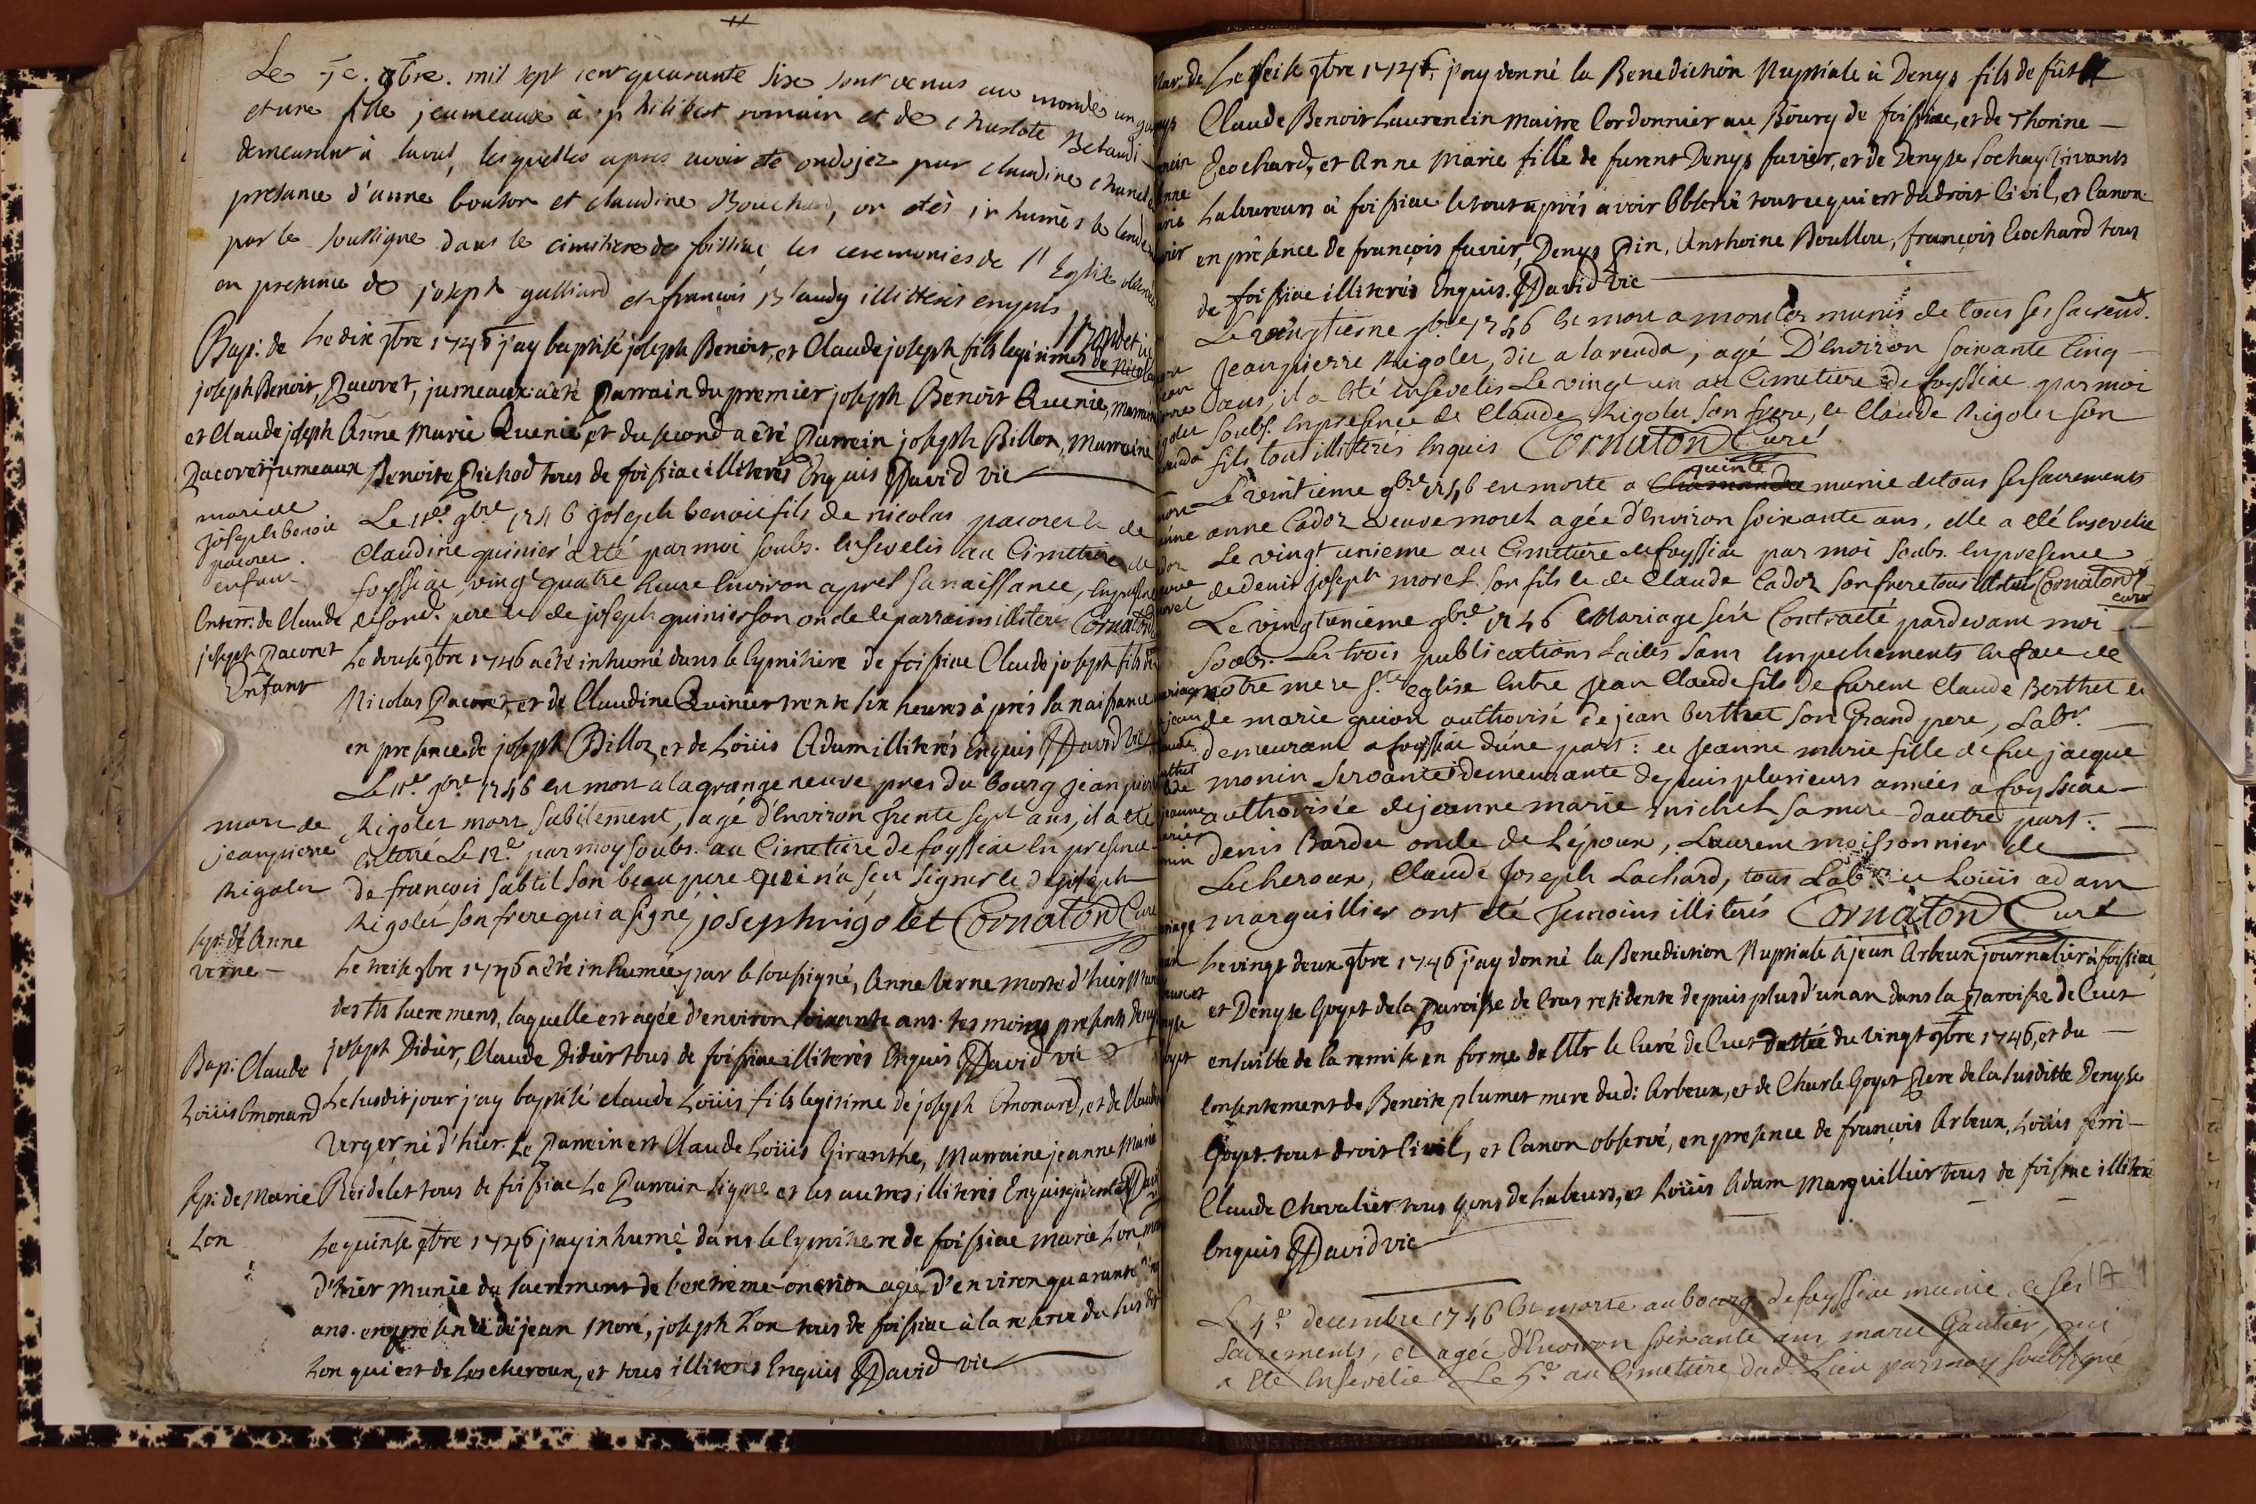 Le 7e. 9bre. mil sept cent quarante six sont venus au monde un
et une fille jeumeaux à philibert romain et de charlote Betaudi
demeurant à laval, lesquelles apres avoir eté ondojez par claudine
presance d'anne boutor et claudine Bouchard, on etés inhumés le lende
par le soussigne dans le cimitiere de foissiac les ceremonies de l'Eglise
en presance de joseph galliard et françois Blaudy illitterés enquis
Bapt: de
joseph Benoit, Pacoret,
et Claude joseph
Pacoret jumeaux
Le dix 9bre 1746 j'ay baptisé joseph Benoit, et Claude joseph fils legitimes de Nicolas
jumeaux a été Parrain du premier joseph Benoit Quenie,
Anne Marie Quenie et du second a été Parrein joseph Billon, Marraine
Benoite Pichod tous de foissiac illiterés Enquis David vic
mort de
joseph benoit
pacoret
enfant
Le 11e 9bre 1746 joseph benoit fils de nicolas pacoret et de
Claudine quinier a été par moi soubs. ensevelis au Cimetiere de
foyssiac, vingt quatre heure Environ apres sa naissance,
pere et de joseph quinier son oncle et parrain illiterés Cornaton
Enterr: de Claude
joseph Pacoret
Enfant
Le douse 9bre 1746 a été inhumé dans le cymitiere de foissiac Claude joseph fils de
Nicolas Pacoret, et de Claudine Quinier trente six heures après sa naissance
en presence de joseph Billoz, et de Loüis Adam illiterés Enquis David vic
mort de
jeanpierre
Rigolet
Le 11e 9bre 1746 est mort a la grange neuve pres du bourg jean pierre
Rigolet mort subitement, agé d'Environ trente sept ans, il a été
enterré Le 12e par moy soubs. au Cimetiere de foyssiac En presence
de francois subtil son beau pere qui n'a sceu signer et de joseph
Rigolet son frere qui a signé, joseph rigolet Cornaton Curé
sep: de Anne
verne
Le treise 9bre 1746 a été inhumée par le soussigné, Anne verne morte d'hier
des sts sacremens, laquelle est agée d'environ soixante ans. tesmoins presents Denys
joseph Didier, Claude Didier tous de foissiac illiterés Enquis David vic
Bap: Claude
Loüis Emonard
Le susdit jour j'ay baptisé claude Loüis fils legitime de joseph Emonard, et de Claude
Verger, né d'hier. Le Parrein est Claude Loüis Giranthe, Marraine jeanne Marie
Reidelet tous de foissiac Le Parrain signe et les autres illiterés Enquis
sep: de Marie
Lon
Le quinse 9bre 1746 j'ay inhumé dans le cymitiere de foissiac marie Lon
d'hier munie du sacrement de l'extreme onction agée d'environ quarante
ans. en presence de jean Moré, joseph Lon tous de foissiac à la reserve du susdit
Lon qui est de Lescheroux, et tous illiterés Enquis David vic
Mar. de
Le seise 9bre 1746, j'ay donné la Benediction Nuptiale à Denys fils de fut
Claude Benoit Laurencin maitre Cordonnier au Bourg de foissiac, et de Thorine
Ecochard, et Anne Marie fille de furent Denys favier, et de Denyse Sochay vivants
Laboureurs à foissiac le tout après avoir Observé tout ce qui est du droit Civil, et Canon.
en présence de françois favier, Denys Pin, Anthoine Boullou, françois Ecochard tous
de foissiac illiterés Enquis. David vic
Le vingtieme 9bre 1746 Est mort a muni de tous ses sacrem.
Jean pierre Rigolet, dit a la renda, agé D'Environ soixante Cinq
ans, il a été Ensevelis Le vingt un au Cimetiere de foyssiac par moi
soubs. En presence de Claude Rigolet son frere, et Claude Rigolet son
fils tous illiterés Enquis Cornaton Curé
Le vintieme 9bre 1746 est morte a munie de tous ses sacrements
anne Cadoz veuve morel agée d'Environ soixante ans, elle a eté Ensevelie
Le vingt unieme au Cimetiere de foyssiac par moi soubs. En presence
de denis joseph morel son fils et de Claude Cadoz son frere tous Cornaton
curé
Le vingt unieme 9bre 1746 Mariage s'est Contracté pardevant moi
soubs. Les trois publications faites sans Empechements En face de
notre mere ste eglise Entre Jean Claude fils de furent Claude Berthet et
de marie guion authorisé de jean berthet son Grand pere, Labr.
demeurant a foyssiac d'une part: et Jeanne marie fille de feu jacque
monin servante demeurante depuis plusieurs années a foyssiac
authorisée de jeanne marie michel sa mere d'autre part:
denis Bardet oncle de L'epoux, Laurent moissonnier de
Lecheroux, Claude Joseph Lachard, tous Labrs et Loüis adam
marguillier ont été temoins illiterés Cornaton Curé
Le vingt deux 9bre 1746 j'ay donné la Benediction Nuptiale à jean Arbeux journalier à foissiac,
et Denyse Goyet de la Paroisse de Cras residente depuis plus d'un an dans la Paroisse de Cuet
ensuitte de la remise en forme de Mr le Curé de Cuet dattée du vingt 9bre 1746, et du
Consentement de Benoite plumet mere dud: Arbeux, et de Charle Goyet Pere de la susditte Denyse
Goyet. tout droit Civil, et Canon observé, en presence de françois Arbeux, Loüis ferri-
Claude Chevalier tous gens de Labeurs, et Loüis Adam Marguillier tous de foissiac illiterés
Enquis David vic
Le 4e decembre 1746 Est morte au bourg de foyssiac munie de ses
sacrements, et agée d'Environ soixante ans marie Gautier, qui
a été Ensevelie Le 5e au Cimetiere dud. Lieu par moy soubsigné